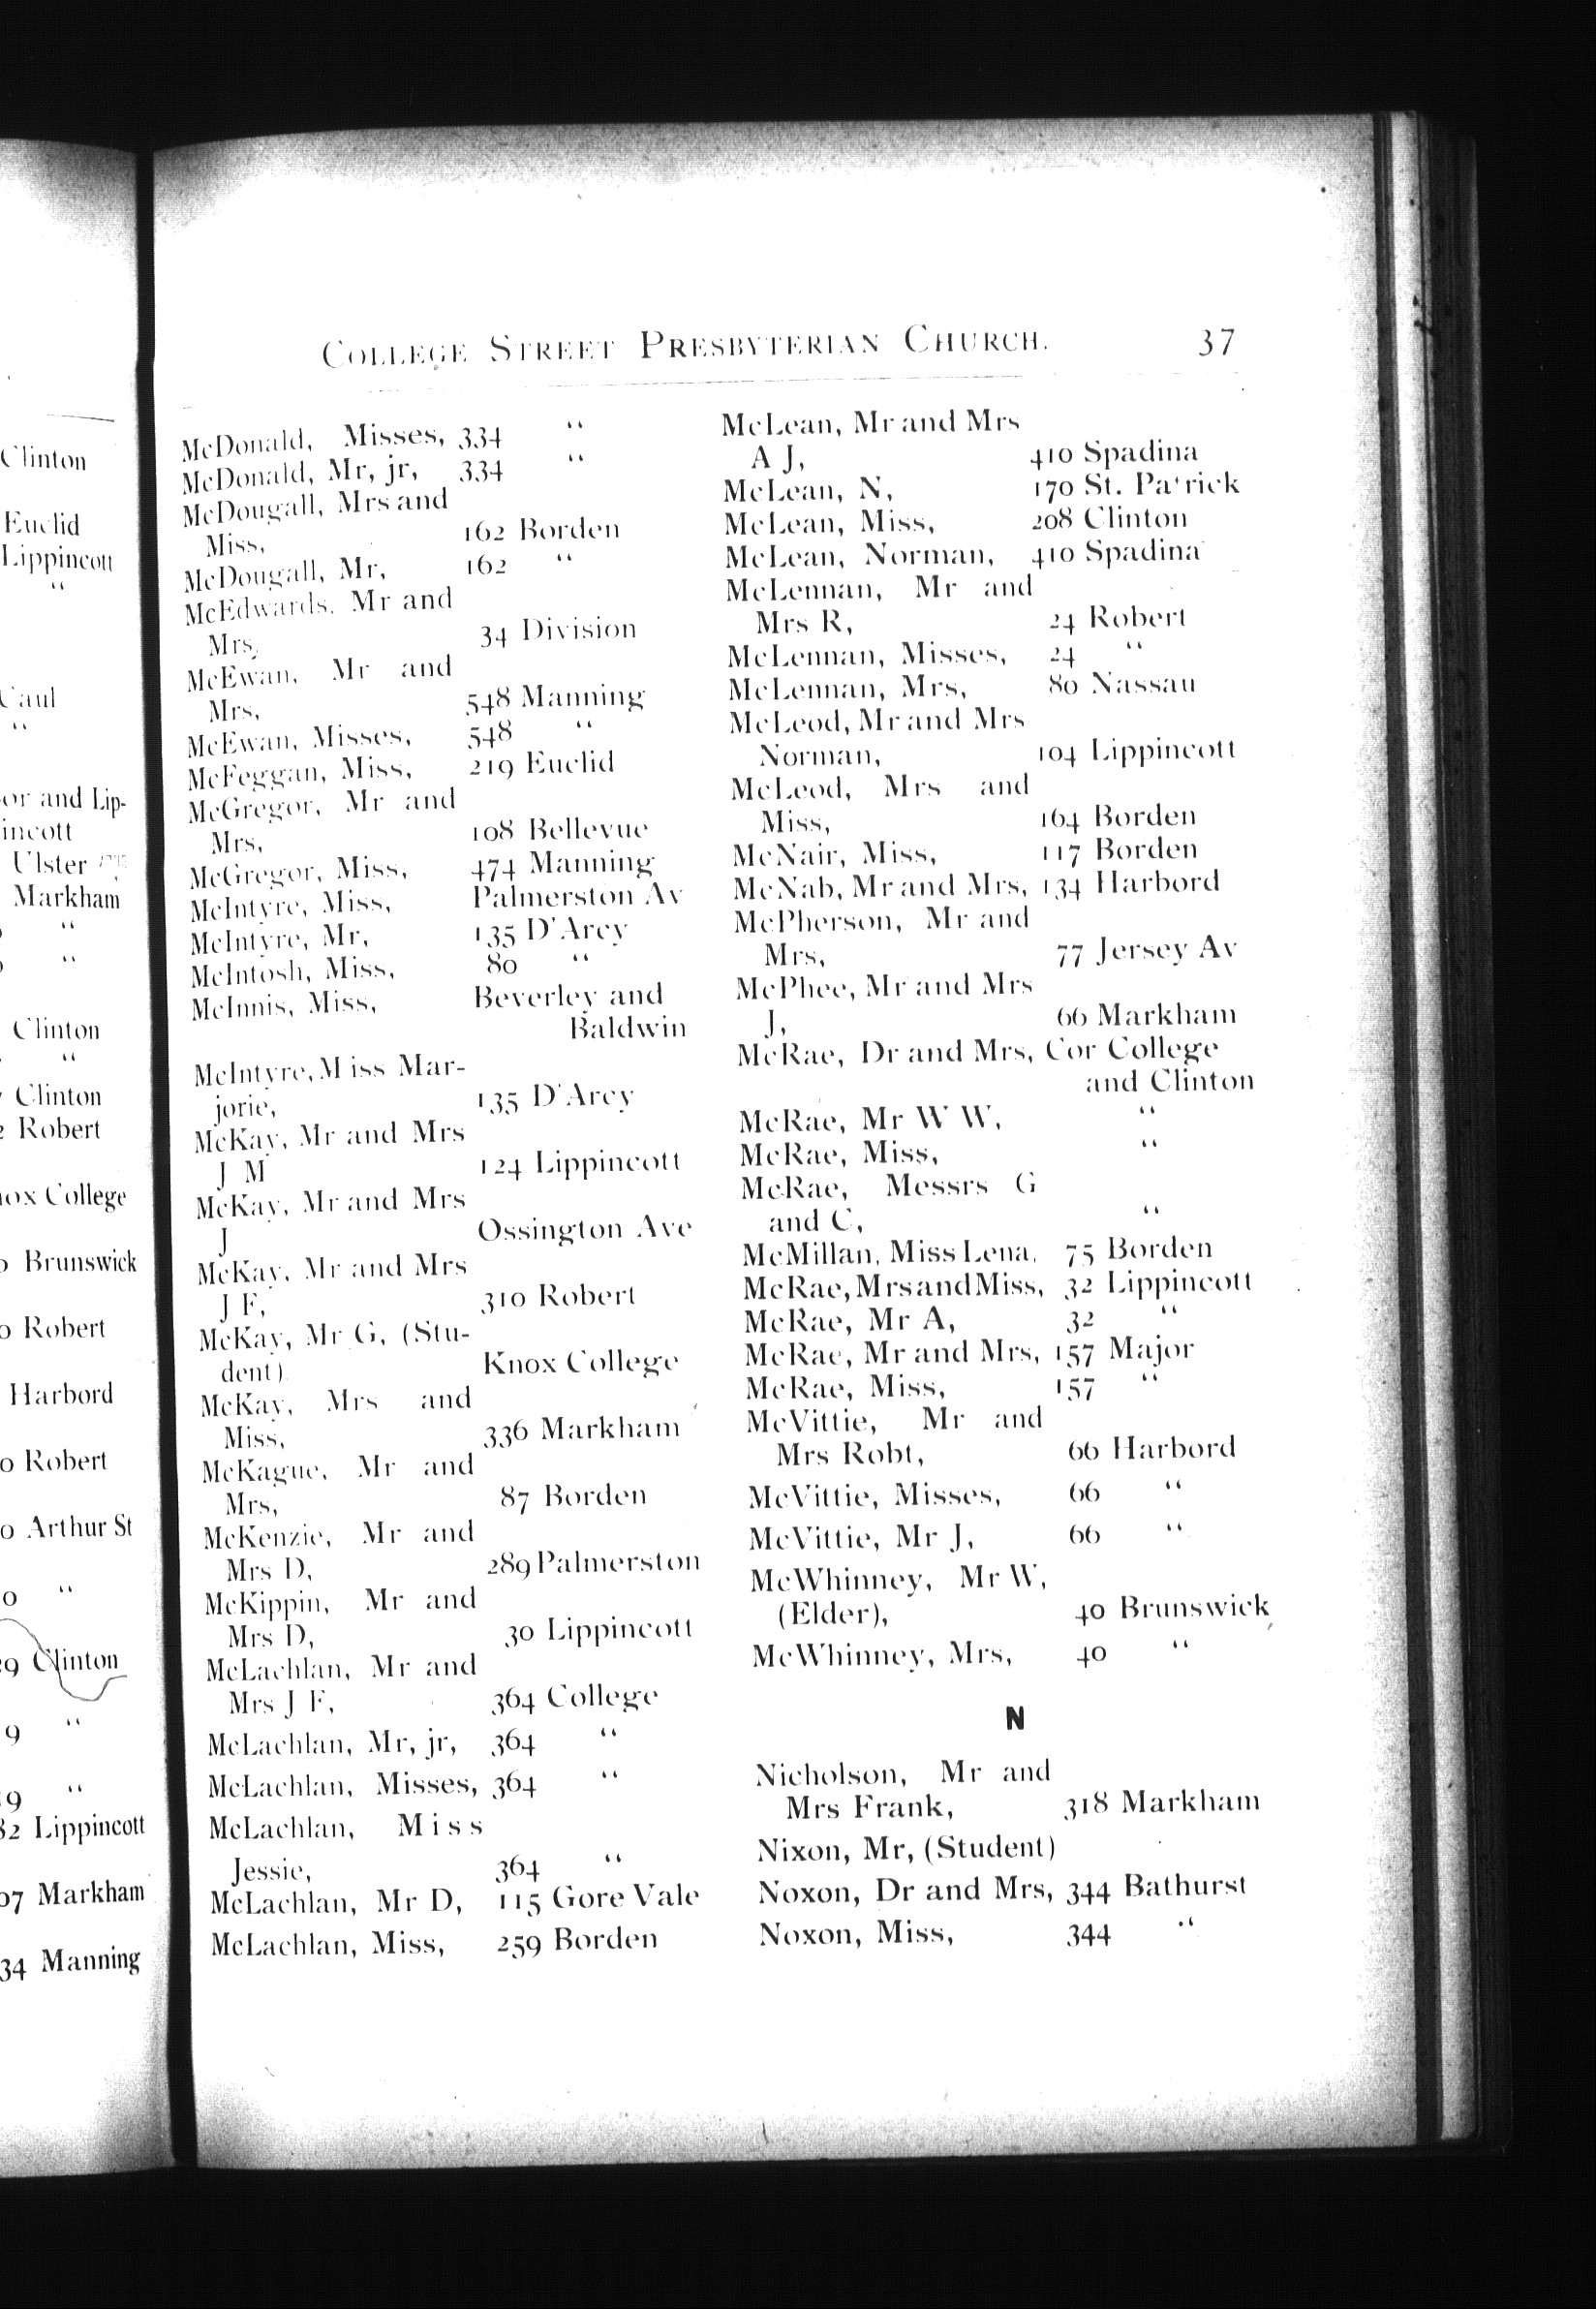 Clinton
Euclid
Lippincott
“
Caul
“
or and Lip-
incott
Ulster
Markham
“
“
Clinton
“
Clinton
2 Robert
nox College
0 Brunswick
0 Robert
Harbord
0 Robert
0 Arthur St
0 “
29 Clinton
9 “
19 “
82 Lippincott
07 Markham
34 Manning
COLLEGE STREET PRESBYTERIAN CHURCH. 37
McDonald, Misses, 334 “
McDonald, Mr, jr, 334 “
McDougall, Mrs and
Miss, 162 Borden
McDougall, Mr, 162 “
McEdwards, Mr and
Mrs, 34 Division
McEwan, Mr and
Mrs, 548 Manning
McEwan, Misses, 548 “
McFeggan, Miss, 219 Euclid
McGregor, Mr and
Mrs, 108 Bellevue
McGregor, Miss, 474 Manning
McIntyre, Miss, Palmerston Av
McIntyre, Mr, 135 D'Arcy
McIntosh, Miss, 80 “
McInnis, Miss, Beverley and
Baldwin
McIntyre, Miss Mar-
jorie, 135 D'Arcy
McKay, Mr and Mrs
J M 124 Lippincott
McKay, Mr and Mrs
J Ossington Ave
McKay, Mr and Mrs
J F, 310 Robert
McKay, Mr G, (Stu-
dent) Knox College
McKay, Mrs and
Miss, 336 Markham
McKague, Mr and
Mrs, 87 Borden
McKenzie, Mr and
Mrs D, 289 Palmerston
McKippin, Mr and
Mrs D, 30 Lippincott
McLachlan, Mr and
Mrs J F, 364 College
McLachlan, Mr, jr, 364 “
McLachlan, Misses, 364 “
McLachlan, Miss
Jessie, 364 “
McLachlan, Mr D, 115 Gore Vale
McLachlan, Miss, 259 Borden
McLean, Mr and Mrs
A J, 410 Spadina
McLean, N, 170 St. Patrick
McLean, Miss, 208 Clinton
McLean, Norman, 410 Spadina
McLennan, Mr and
Mrs R, 24 Robert
McLennan, Misses, 24 “
McLennan, Mrs, 80 Nassau
McLeod, Mr and Mrs
Norman, 104 Lippincott
McLeod, Mrs and
Miss, 164 Borden
McNair, Miss, 117 Borden
McNab, Mr and Mrs, 134 Harbord
McPherson, Mr and
Mrs, 77 Jersey Av
McPhee, Mr and Mrs
J, 66 Markham
McRae, Dr and Mrs, Cor College
and Clinton
McRae, Mr W W, “
McRae, Miss, “
McRae, Messrs G
and C, “
McMillan, Miss Lena, 75 Borden
McRae, Mrs and Miss, 32 Lippincott
McRae, Mr A, 32 “
McRae, Mr and Mrs, 157 Major
McRae, Miss, 157 “
McVittie, Mr and
Mrs Robt, 66 Harbord
McVittie, Misses, 66 “
McVittie, Mr J, 66 “
McWhinney, Mr W,
(Elder), 40 Brunswick
McWhinney, Mrs, 40 “
N
Nicholson, Mr and
Mrs Frank, 318 Markham
Nixon, Mr, (Student)
Noxon, Dr and Mrs, 344 Bathurst
Noxon, Miss, 344 “